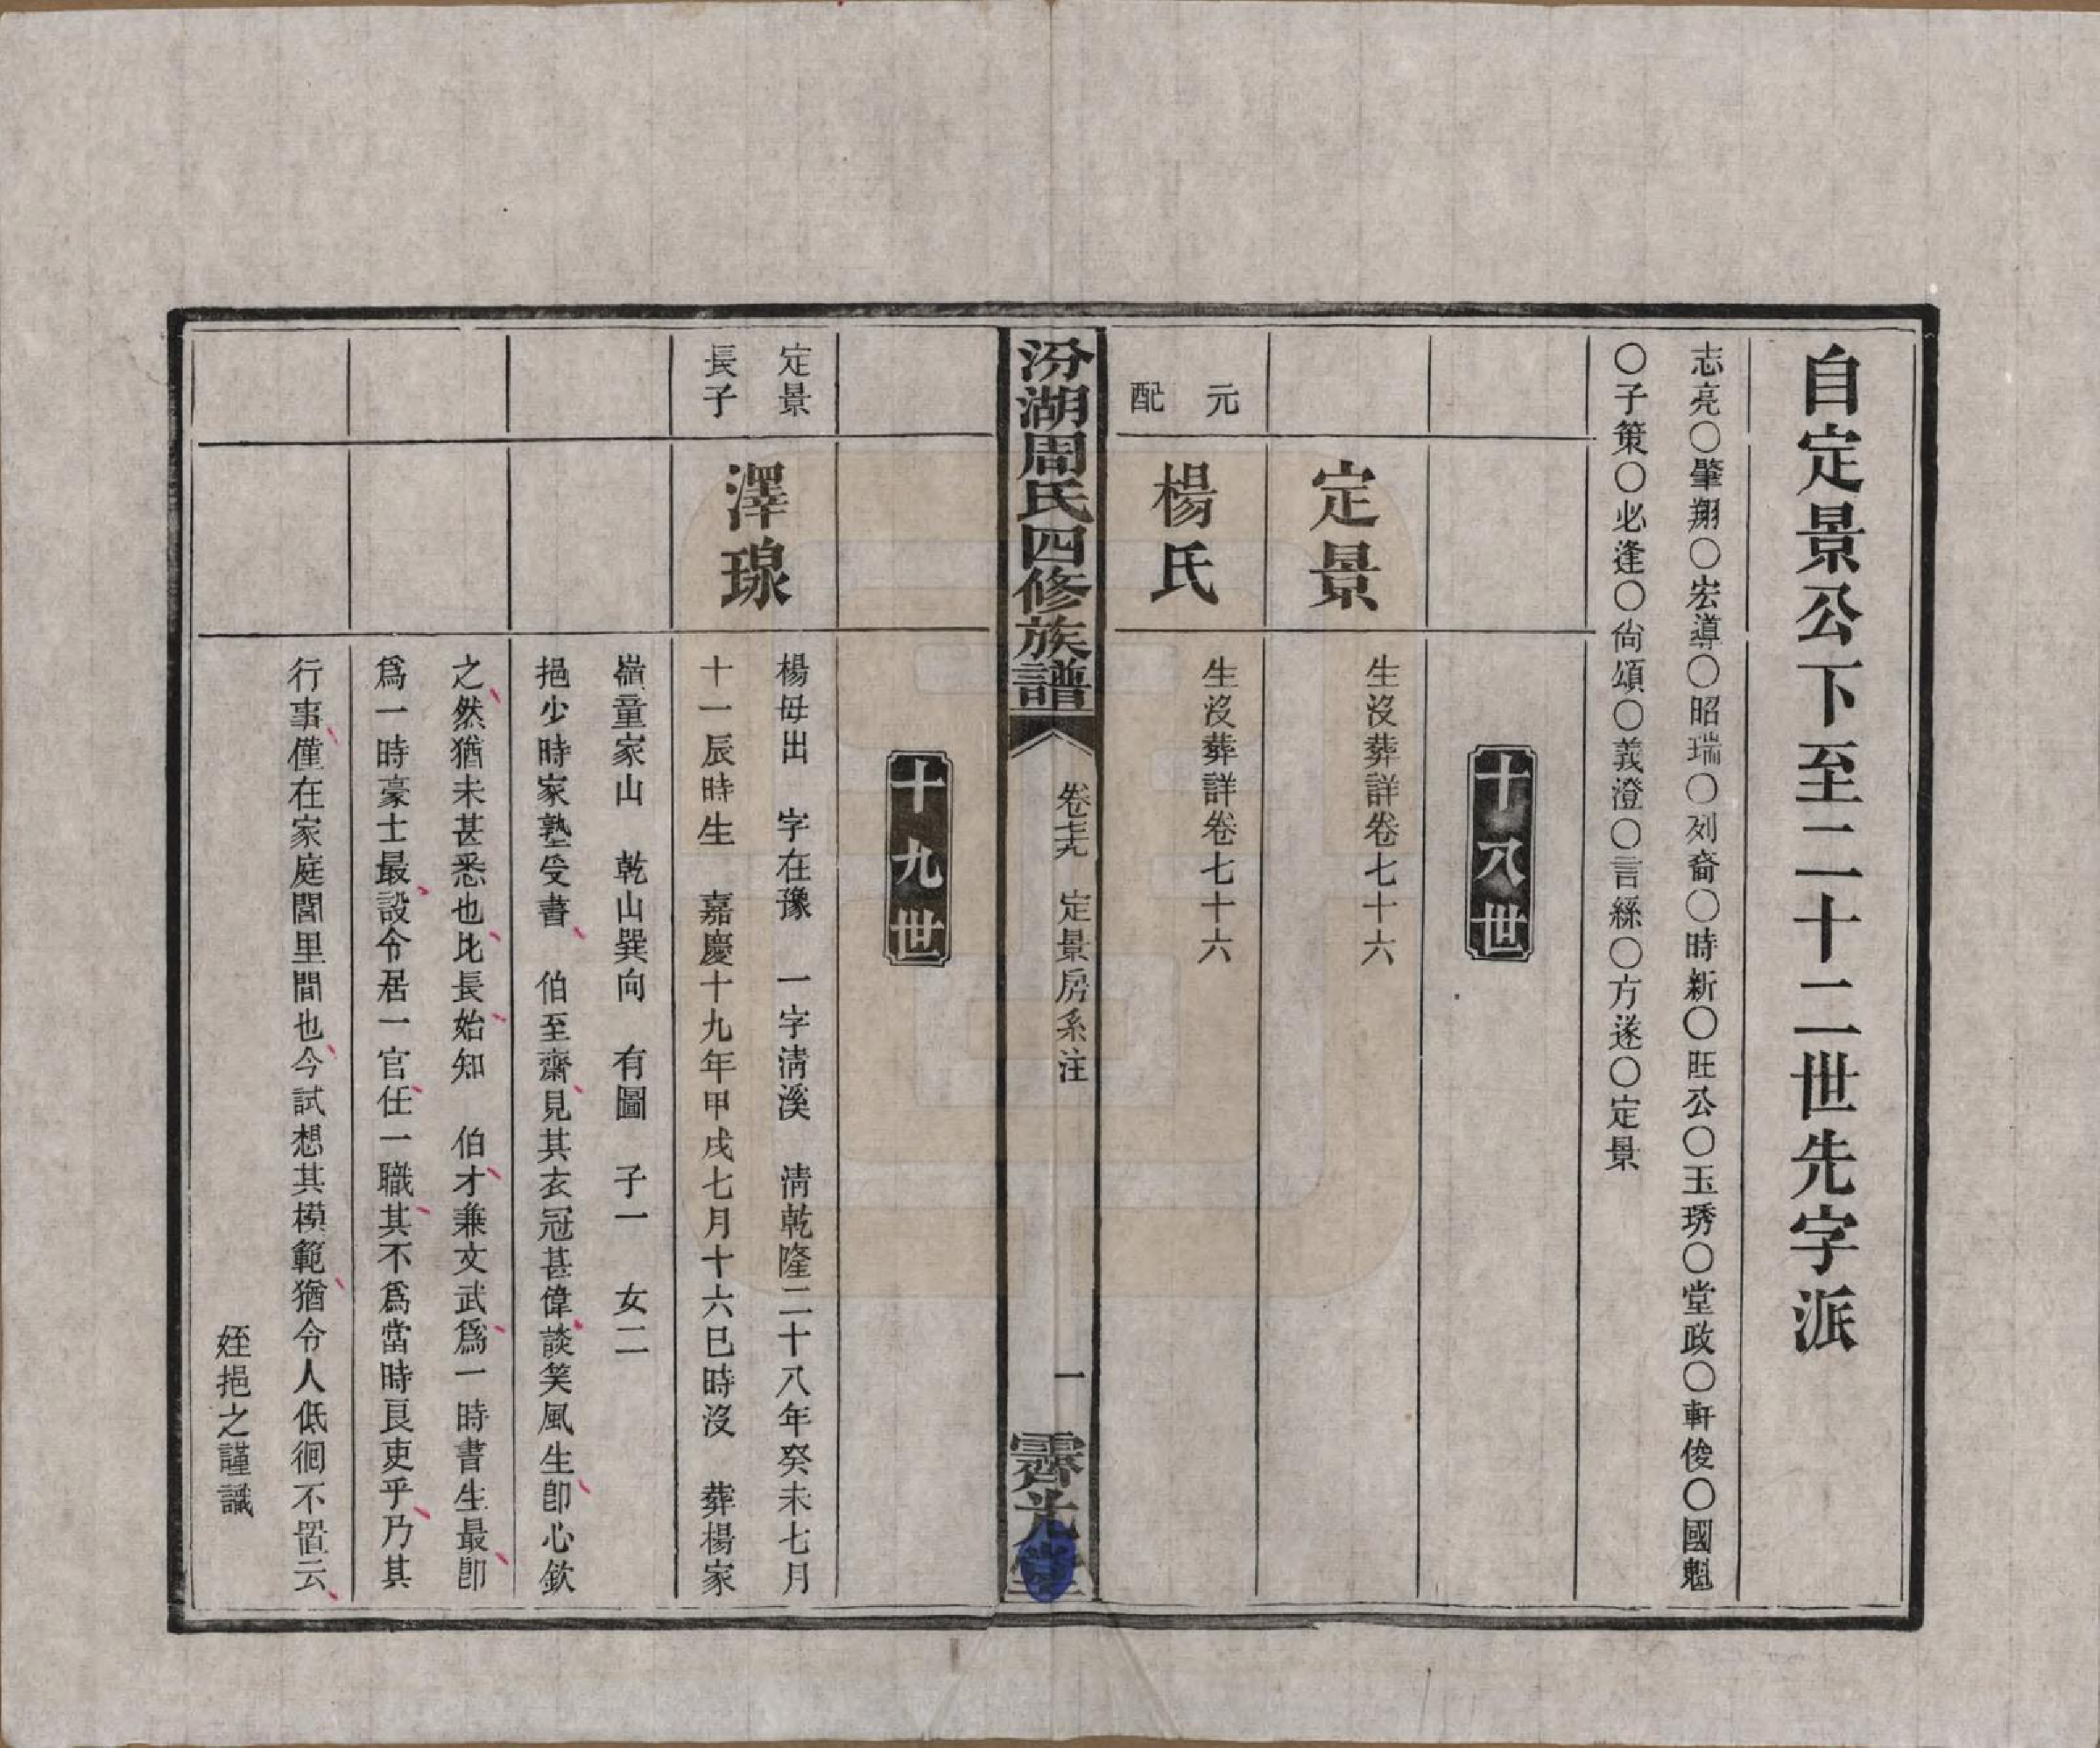 自定景公下至二十二世先字派
志亮〇肇翔〇宏導〇昭瑞〇列裔〇時新〇旺公〇玉琇〇堂政〇軒俊〇國魁
〇子策〇必逢〇尙頌〇義澄〇言繇〇方遂〇定景
十八世
定景
生沒葬詳卷七十六
元
配
楊氏
生沒葬詳卷七十六
汾湖周氏四修族譜
卷七十九 定景房系注
一
霽光堂
十九世
定景
長子
澤瑔
楊母出 字在豫 一字淸溪 淸乾隆二十八年癸未七月
十一辰時生 嘉慶十九年甲戌七月十六巳時沒 葬楊家
嶺童家山 乾山巽向 有圖 子一 女二
挹少時家塾受書 伯至齋見其衣冠甚偉談笑風生卽心欽
之然猶未甚悉也比長始知 伯才兼文武爲一時書生最卽
爲一時豪士最設令居一官任一職其不爲當時良吏乎乃其
行事僅在家庭閭里間也今試想其模範猶令人低徊不置云
姪挹之謹識